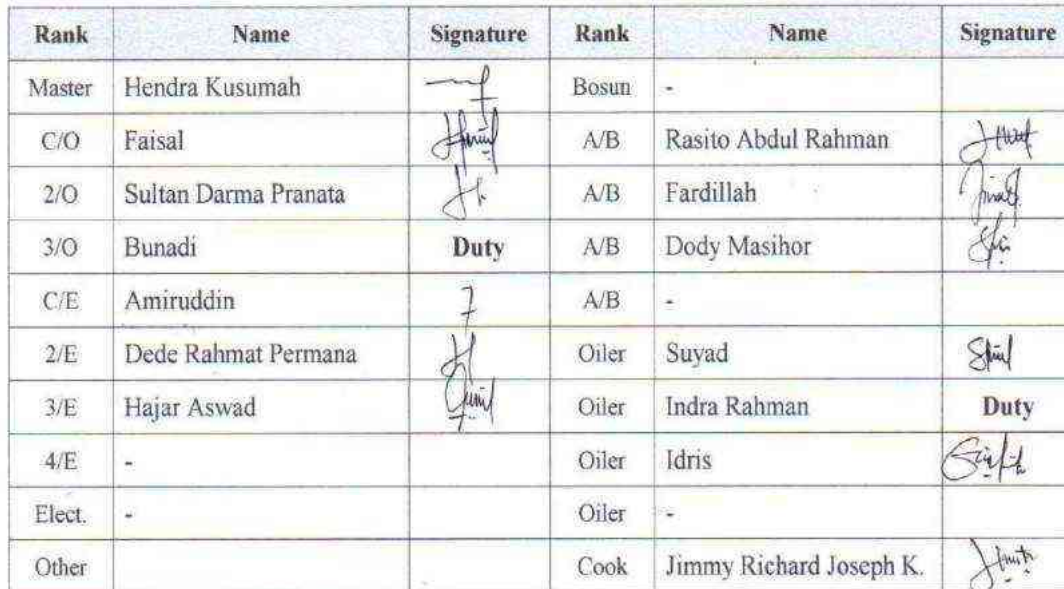 Rank Name Signature Rank Name Signature
Master Hendra Kusumah Bosun -
C/O Faisal A/B Rasito Abdul Rahman
2/O Sultan Darma Pranata A/B Fardillah
3/O Bunadi Duty A/B Dody Masihor
C/E Amiruddin A/B -
2/E Dede Rahmat Permana Oiler Suyad
3/E Hajar Aswad Oiler Indra Rahman Duty
4/E - Oiler Idris
Elect. - Oiler -
Other Cook Jimmy Richard Joseph K.